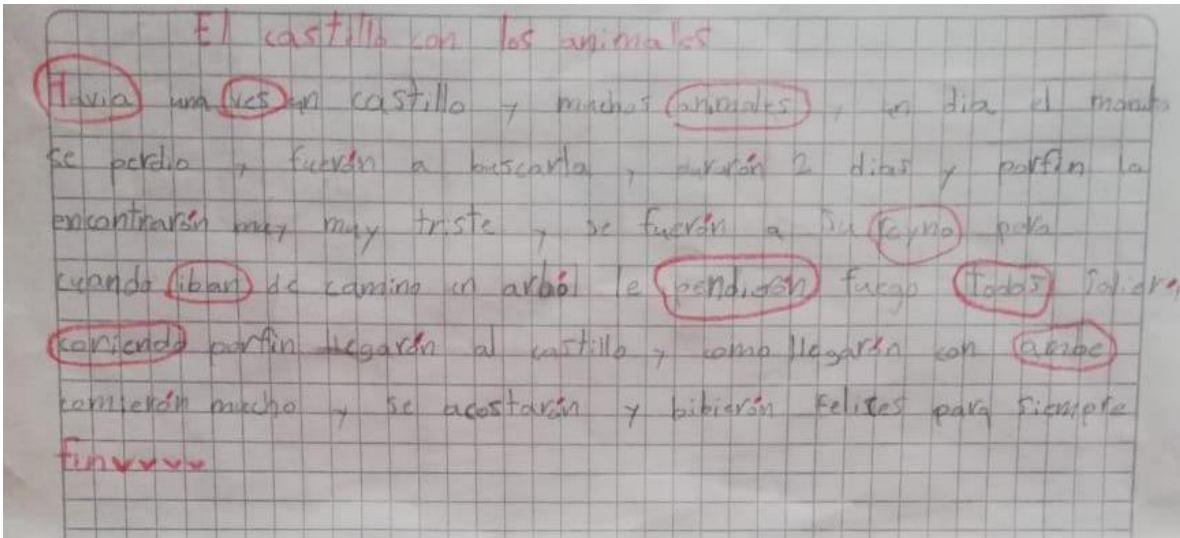 El castillo con los animales
Havia una ves un castillo y muchos animales, un dia el
se perdio y fuerón a buscarla, durarón 2 dias y porfin la
encontrarón muy muy triste y se fuerón a su reyno pero
cuando iban de camino un arból le pendierón fuego todos
corriendo porfin llegarón al castillo y como llegarón con
comierón mucho y se acostarón y bibierón felises para siempre
fin